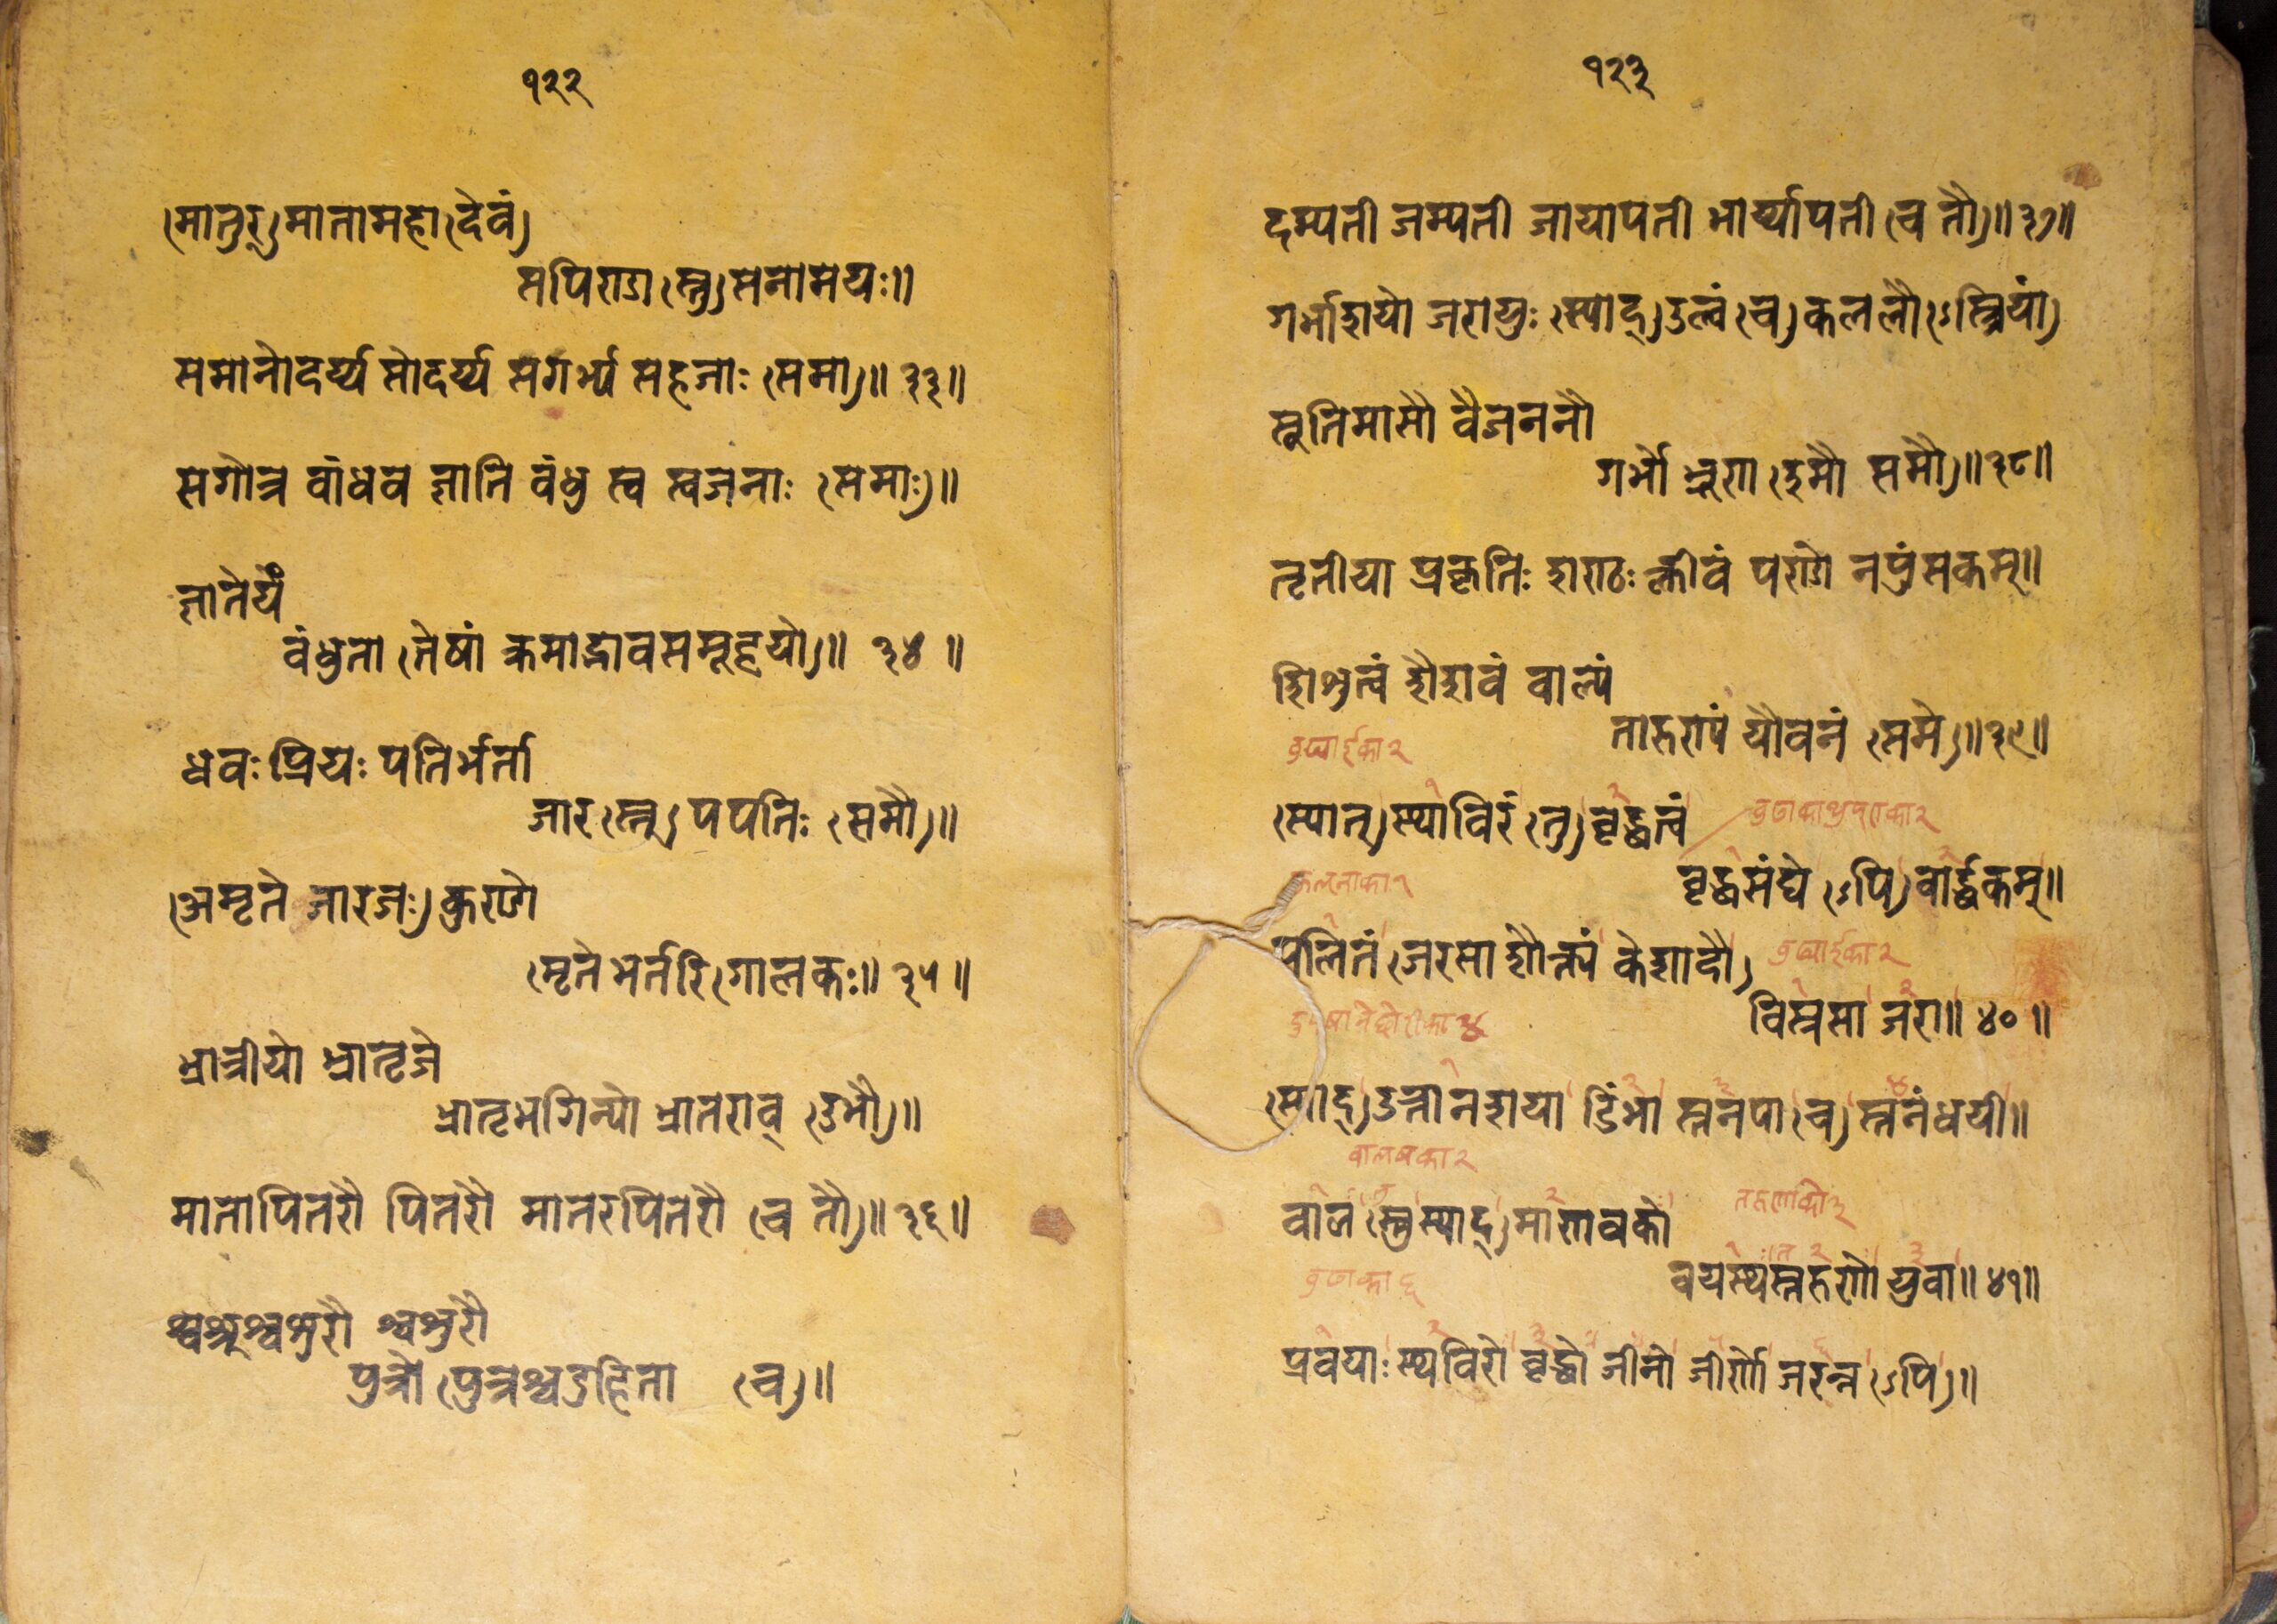 १२२
(मातुर्)मातामहा(देवं)
सपिण्डा(स्तु)सनाभयः॥
समानोदर्य्य सोदर्य्य सगर्भ्य सहजाः (समा)॥ ३३॥
सगोत्र वांधव ज्ञाति वंधु स्व स्वजनाः (समाः)॥
ज्ञातेयं
वंधुता (तेषां क्रमाद्भावसमूहयो)॥ ३४ ॥
धवः प्रियः पतिर्भर्ता
जार(स्तू)पपतिः (समौ)॥
(अमृते जारजः)कुण्डो
(मृते भर्तरि(गोलकः॥ ३५॥
भ्रात्रीयो भ्रातृजो
भ्रातृभगिन्यो भ्रातराव् (उभौ)॥
मातापितरौ पितरौ मातरपितरौ (च तौ)॥ ३६॥
श्वश्रूश्वशुरौ श्वशुरौ
पुत्रौ (पुत्रश्चदुहिता (च)॥
१२३
दम्पती जम्पती जायापती भार्य्यापती (च तौ)॥ ३७॥
गर्भाशयो जरायुः (स्याद्)उल्वं (च)कललो(ऽस्त्रियां)
सूतिमासो वैजननो
गर्भो भ्रूण (इमौ समौ)॥३८॥
तृतीया प्रकृतिः शण्ठः क्लीवं पण्डो नपुंसकम्॥
शिशुत्वं शैशवं वाल्यं
तारुण्यं यौवनं (समे)॥३९॥
(स्यात्)स्थाविरं(तु)वृद्धत्वं
वृद्धसंघे (ऽपि)वार्द्धकम्॥
पलितं (जरसा शौक्ल्यं केशादौ)
विस्रसा जरा॥ ४०॥
(स्याद्)उत्तानशया डिंभा स्तनपा(च)स्तनंधयी॥
वाल(स्तुस्याद्)माणवको
वयस्थस्तरुणो युवा॥ ४१॥
प्रवयाः स्थविरो वृद्धो जीनो जीर्णो जरन्न(ऽपि)॥